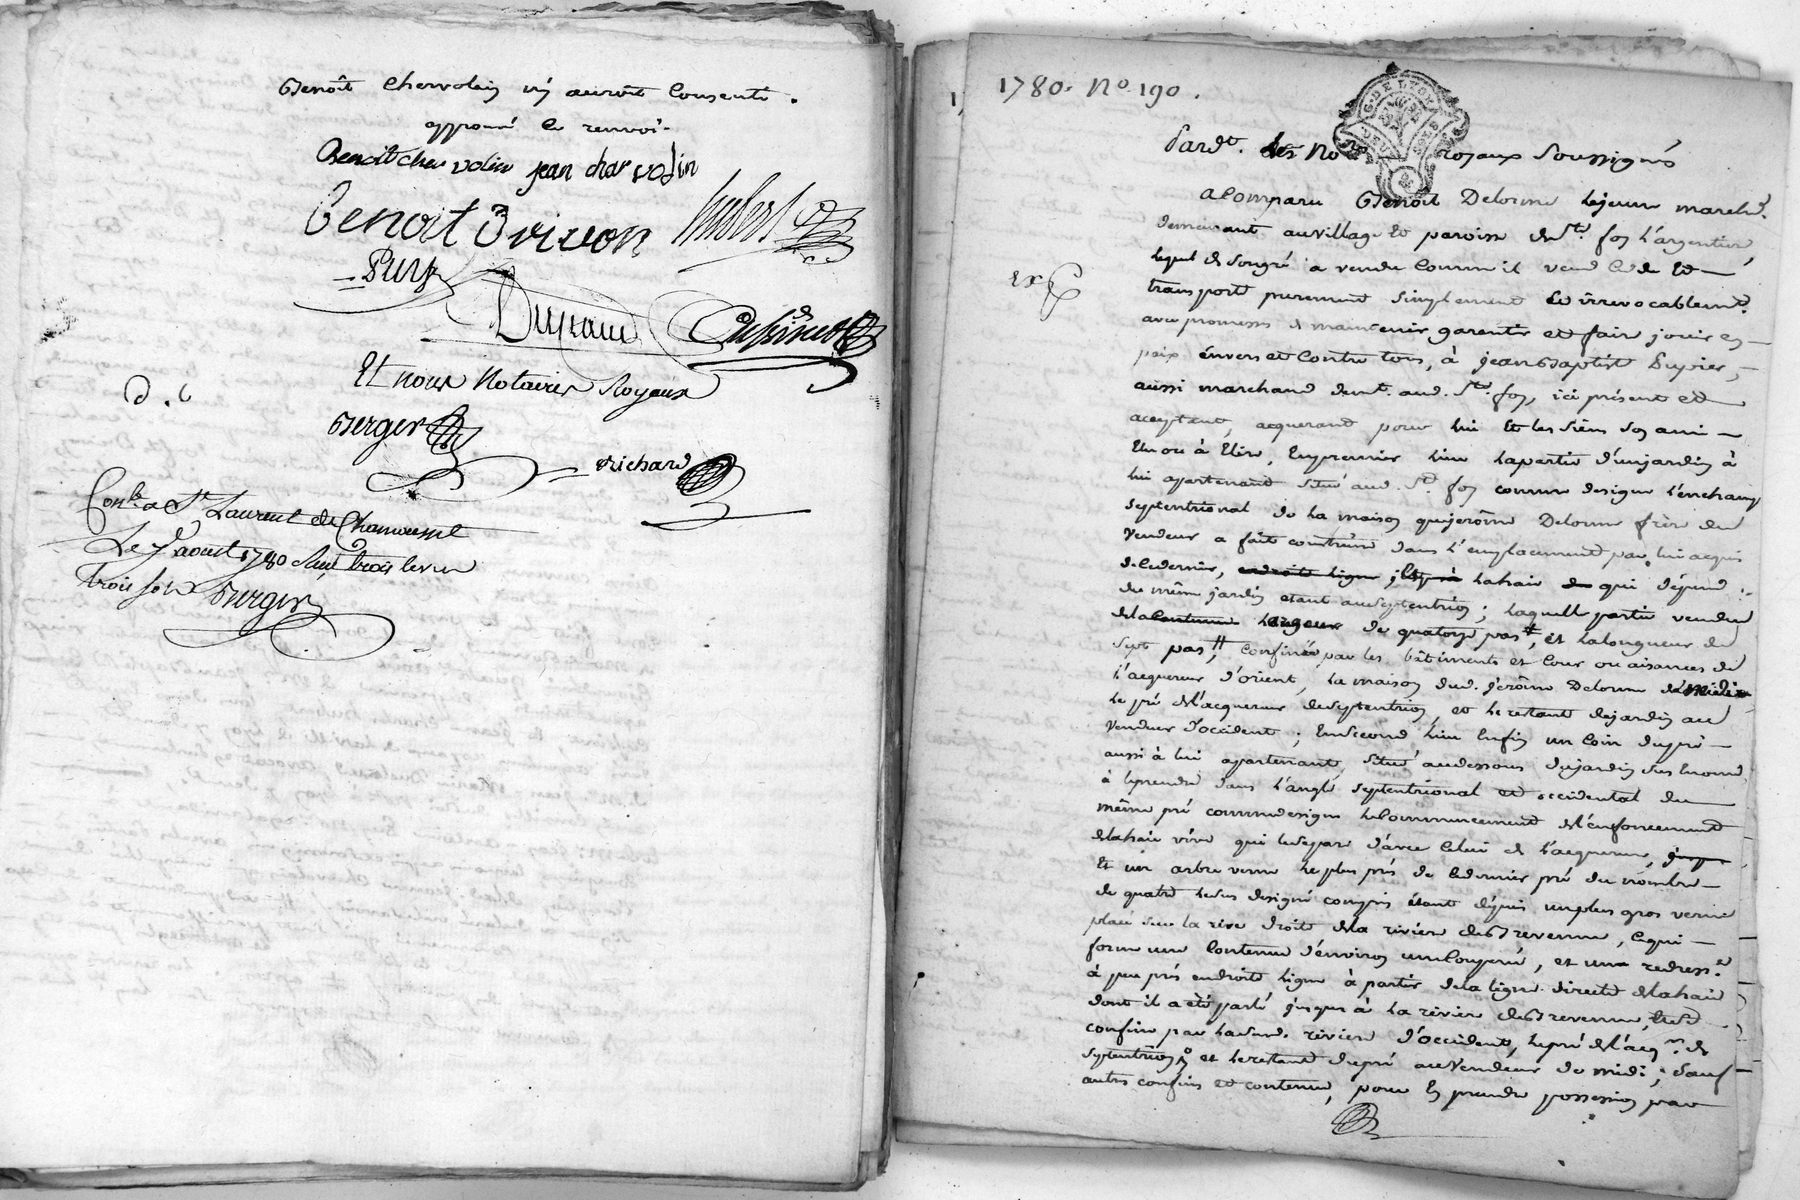 Benoît Chervolin n'y auroit Consenti.
approuvé le renvoi.
Benoit cher volin jean char vosin
Benoit Brivon
Et nous Notaires Royaux
Berger
Richard
D. C
Con.lé a St Laurent de Chamousset
Le 7 aoust 1780 Reçu trois livres
trois sols Berger
1780. No 190.
G. DE LYON
Pardt. les No royaux Soussignés
a Comparu Benoît Delorme le jeune march.d
demeurant au village et paroisse de Ste foy L'argentiere
lequel de son gré a vendu comme il vend Cede Et
Ex
transporte purement simplement et irrevocablemt.
avec promesses de maintenir garentir et faire jouir en
paix envers et Contre tous, à jean Baptiste Dupier,
aussi marchand demt. aud. Ste foy, ici présent et
aceptant, acquerant pour lui Et les siens son ami
Elu ou à Elire, En premier lieu la partie d'un jardin à
lui apartenant situé aud. Ste foy comme designe
septentrional de la maison que jerôme Delorme frère du
vendeur a fait construire dans l'emplacement par lui acquis
de ce dernier, endroite ligne la haie qui dépend
du même jardin etant au septentrion; laquelle partie vendue
de la Contenue largeur de quatorze pas, et la longueur de
sept pas, Confinée par les bâtiments et Cour ou aisances de
l'acquereur d'orient, la maison dud. jerôme Delorme de midi
le pré de l'acquereur de septentrion, et le restant de jardin au
vendeur d'occident; En second lieu Enfin un Coin de pré
aussi à lui apartenant, situé au dessous du jardin sus Enoncé
à prendre dans l'angle septentrional et occidental du
même pré comme designe le Commencement de l'enfoncement
de la haie vive qui le separe d'avec Celui de l'acquereur,
Et un arbre verne le plus près de ce dernier pré du nombre
de quatre designé compris étant depuis un plus gros verne
placé sur la rive droite de la riviere de Brevenne, lequi
forme une Contenue d'environ une Coupée, et un redress.t
à peu près endroite ligne à partir de la ligne directe de la haie
dont il a été parlé jusques à la riviere de Brevenne,
confiné par lad. riviere d'occident, le pré de l'acq.r de
septentrion, et le restant du pré au Vendeur de midi; sauf
autres confins et contenue, pour En prendre possession par